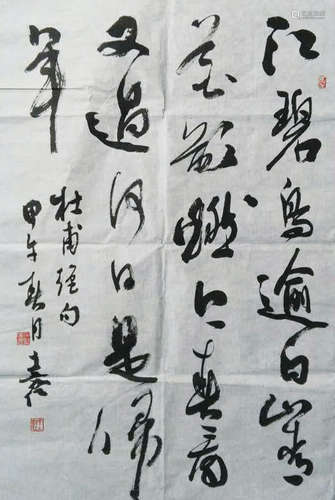 江碧鳥逾白山青
花欲燃今春看
又過何日是歸
年
杜甫絕句
甲午春月